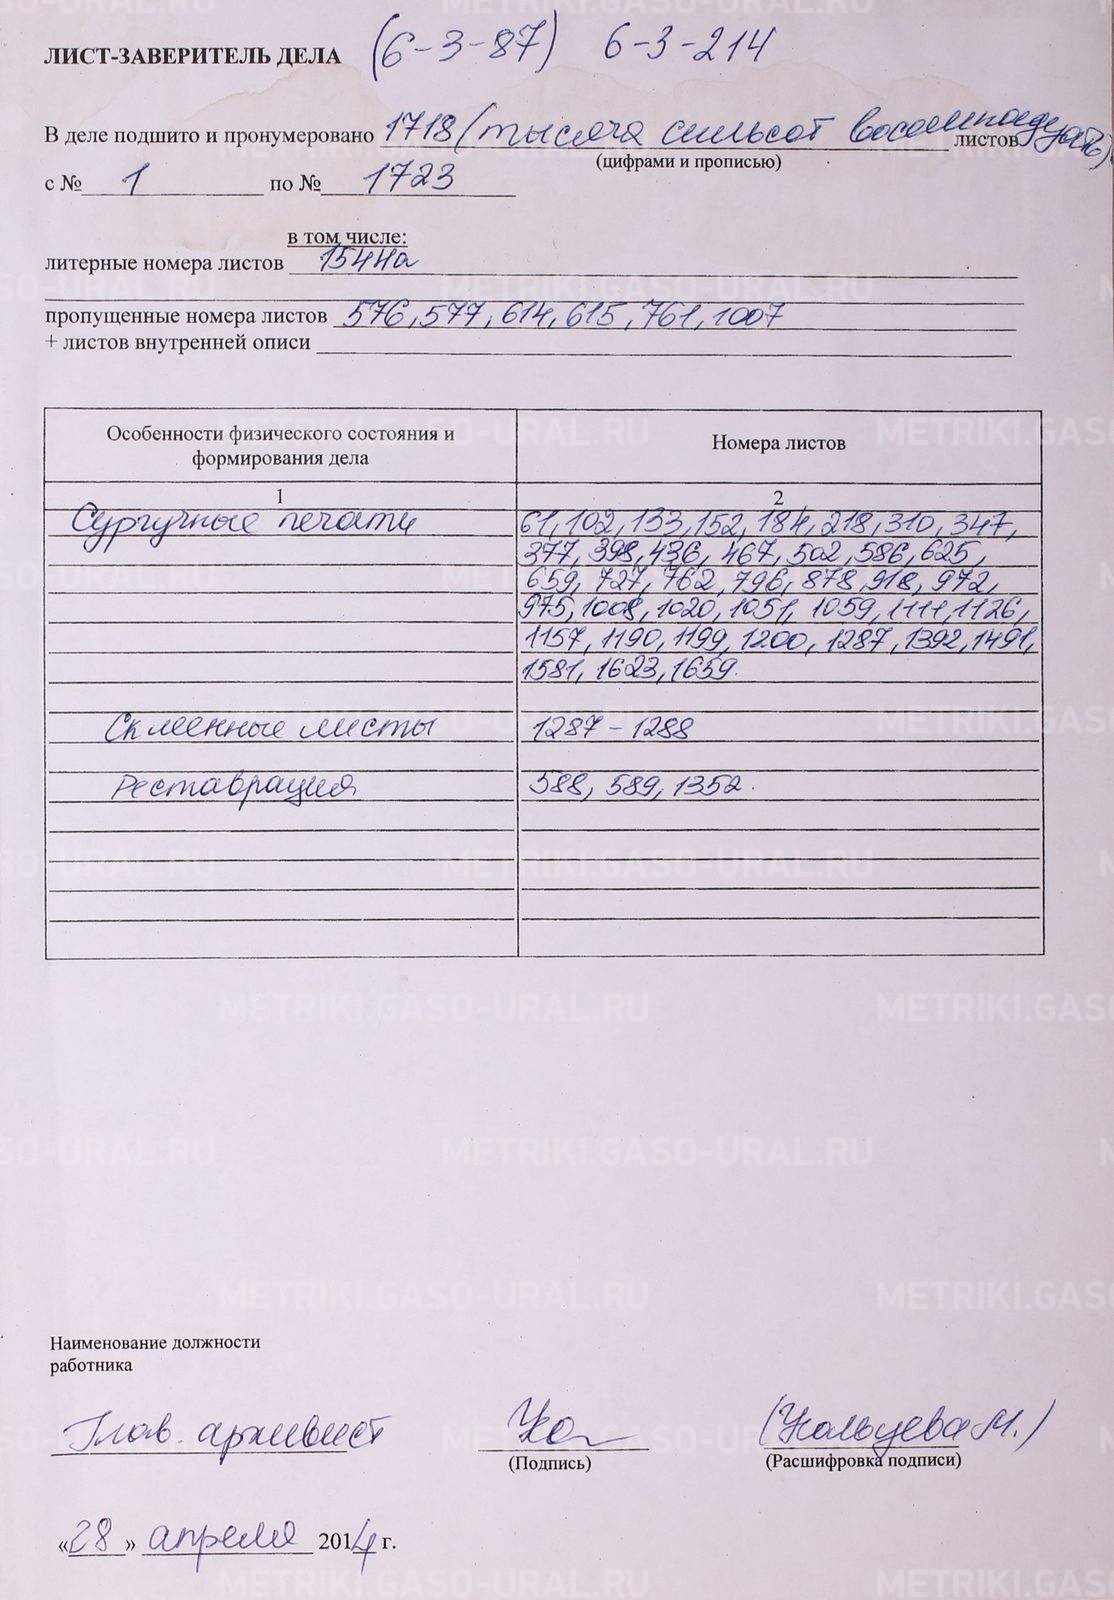 ЛИСТ-ЗАВЕРИТЕЛЬ ДЕЛА (6-3-87) 6-3-214
В деле подшито и пронумеровано 1718 (тысяча семьсот восемнадцать) листов
(цифрами и прописью)
с № 1 по № 1723
в том числе:
литерные номера листов 1544а
пропущенные номера листов 576, 577, 614, 615, 761, 1007
+ листов внутренней описи
Особенности физического состояния и формирования дела
Номера листов
1 2
Сургучные печати 61, 102, 133, 152, 184, 218, 310, 347,
377, 398, 436, 467, 502, 586, 625,
659, 727, 762, 796, 878, 918, 972,
975, 1008, 1020, 1051, 1059, 1111, 1126,
1157, 1190, 1199, 1200, 1287, 1392, 1491,
1581, 1623, 1659.
Склеенные листы 1287-1288
Реставрация 588, 589, 1352.
Наименование должности
работника
Глав. архивист (Кольцева М.)
(Подпись) (Расшифровка подписи)
«28» апреля 2014 г.
METRIKI.GASO-URAL.RU